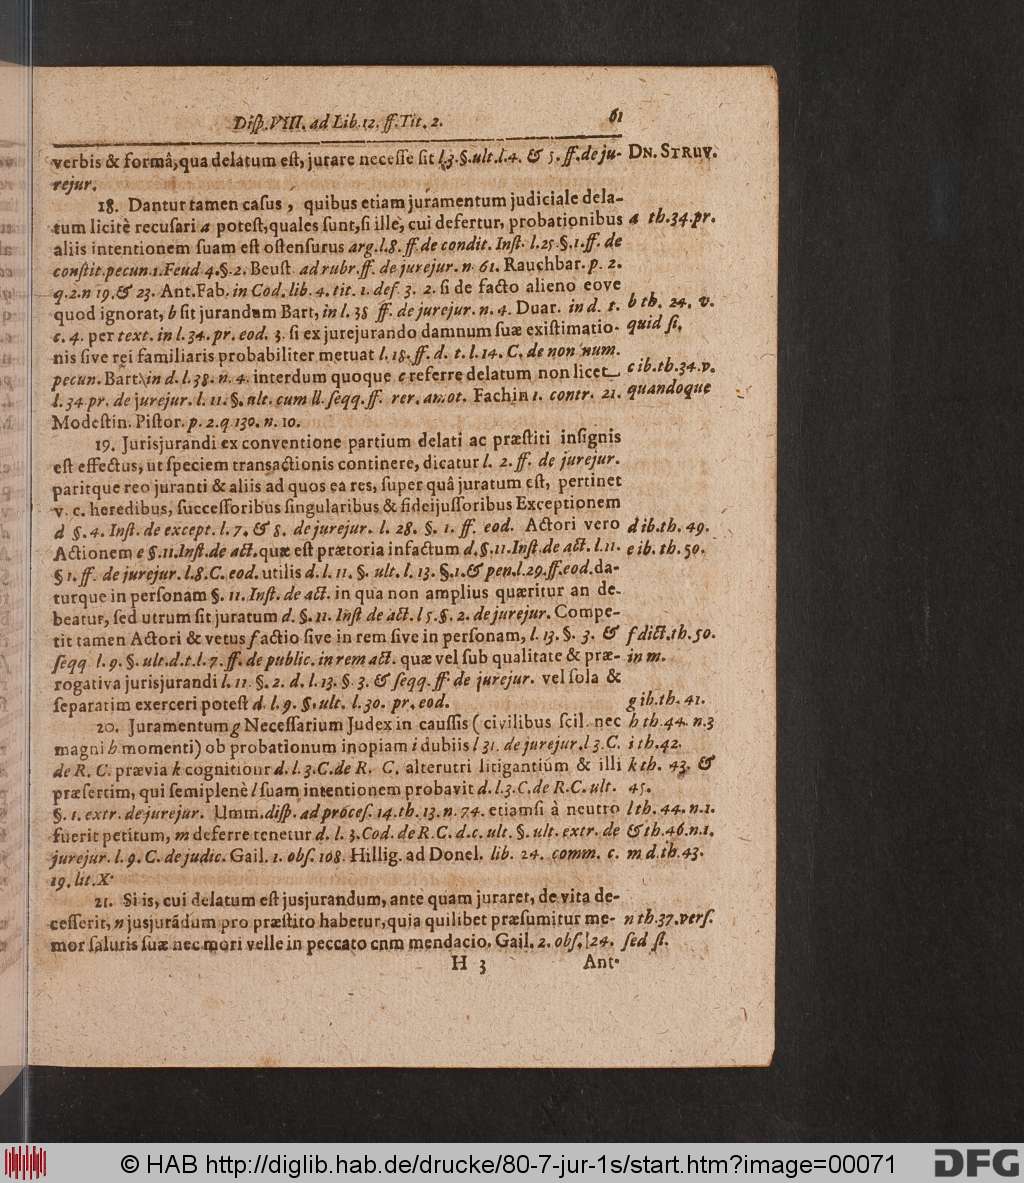 Diſp. VIII. ad Lib. 12. ff. Tit. 2. 61
verbis & formâ, qua delatum eſt, jurare neceſſe ſit l.3.§.ult.l.4. & 5. ff. de ju- DN. STRUV.
rejur.
18. Dantur tamen caſus, quibus etiam juramentum judiciale dela-
tum licitè recuſari a poteſt, quales ſunt, ſi ille, cui defertur, probationibus a th.34.pr.
aliis intentionem ſuam eſt oſtenſurus arg.l.8. ff. de condit. Inſt. l.25.§.1.ff. de
conſtit.pecun.1.Feud 4.§.2. Beuſt. ad rubr. ff. de jurejur. n. 61. Rauchbar. p. 2.
q.2.n 19.& 23. Ant. Fab. in Cod. lib. 4. tit. 1. def. 3. 2. ſi de facto alieno eove
quod ignorat, b ſit jurandum Bart, in l. 38 ff. de jurejur. n. 4. Duar. in d. t. b th. 24. v.
c. 4. per text. in l.34.pr. eod. 3. ſi ex jurejurando damnum ſuæ exiſtimatio- quid ſi,
nis ſive rei familiaris probabiliter metuat l.18.ff. d. t. l.14. C. de non num.
pecun. Bart. in d. l.38. n. 4. interdum quoque c referre delatum non licet c ib.th.34.v.
l.34 pr. de jurejur. l. 11. §. ult. cum ll. ſeqq. ff. rer. amot. Fachin 1. contr. 21. quandoque
Modeſtin. Piſtor. p. 2. q 130. n. 10.
19. Jurisjurandi ex conventione partium delati ac præſtiti inſignis
eſt effectus, ut ſpeciem transactionis continere, dicatur l. 2. ff. de jurejur.
paritque reo juranti & aliis ad quos ea res, ſuper quâ juratum eſt, pertinet
v. c. heredibus, ſucceſſoribus ſingularibus & fideijuſſoribus Exceptionem
d §. 4. Inſt. de except. l. 7. & 8. de jurejur. l. 28. §. 1. ff. eod. Actori vero d ib.th. 49.
Actionem e §.11.Inſt.de act. quæ eſt prætoria infactum d.§.11.Inſt.de act.l.11. e ib. th. 50.
§ 1. ff. de jurejur. l.8.C. eod. utilis d. l. 11. §. ult. l. 13. §.1.& pen.l.29.ff.eod. da-
turque in perſonam §. 11. Inſt. de act. in qua non amplius quæritur an de-
beatur, ſed utrum ſit juratum d. §. 11. Inſt de act. l 5.§. 2. de jurejur. Compe-
tit tamen Actori & vetus f actio ſive in rem ſive in perſonam, l. 13. §. 3. & f dict.th.50.
ſeqq l. 9. §. ult.d.t.l.7. ff. de public. in rem act. quæ vel ſub qualitate & præ- in m.
rogativa jurisjurandi l. 11 §. 2. d. l.13. § 3. & ſeqq. ff de jurejur. vel ſola &
ſeparatim exerceri poteſt d. l. 9. §. ult. l. 30. pr. eod. g ib.th. 41.
20. Juramentum g Neceſſarium Judex in cauſſis (civilibus ſcil. nec h th.44. n.3
magni h momenti) ob probationum inopiam i dubiis l 31. de jurejur. l 3. C. i th.42.
de R. C. prævia k cognitione d. l.3.C.de R. C. alterutri litigantium & illi k th. 43. &
præſertim, qui ſemiplenè l ſuam intentionem probavit d. l.3.C.de R.C. ult. 45.
§. 1. extr. de jurejur. Umm. diſp. ad proceſ. 14. th. 13. n. 74. etiamſi à neutro l th. 44. n.1.
fuerit petitum, m deferre tenetur d. l. 3. Cod. de R.C. d.c. ult. §. ult. extr. de & th.46.n.1.
jurejur. l. 9. C. de judic. Gail. 1. obſ. 108. Hillig. ad Donel. lib. 24. comm. c. m d.th.43.
19. lit. X.
21. Si is, cui delatum eſt jusjurandum, ante quam juraret, de vita de-
ceſſerit, n jusjurádum pro præſtito habetur, quia quilibet præſumitur me- n th.37.verſ.
mor ſalutis ſuæ nec mori velle in peccato cnm mendacio. Gail. 2. obſ. 24. ſed ſi.
H 3 Ant.
© HAB http://diglib.hab.de/drucke/80-7-jur-1s/start.htm?image=00071 DFG